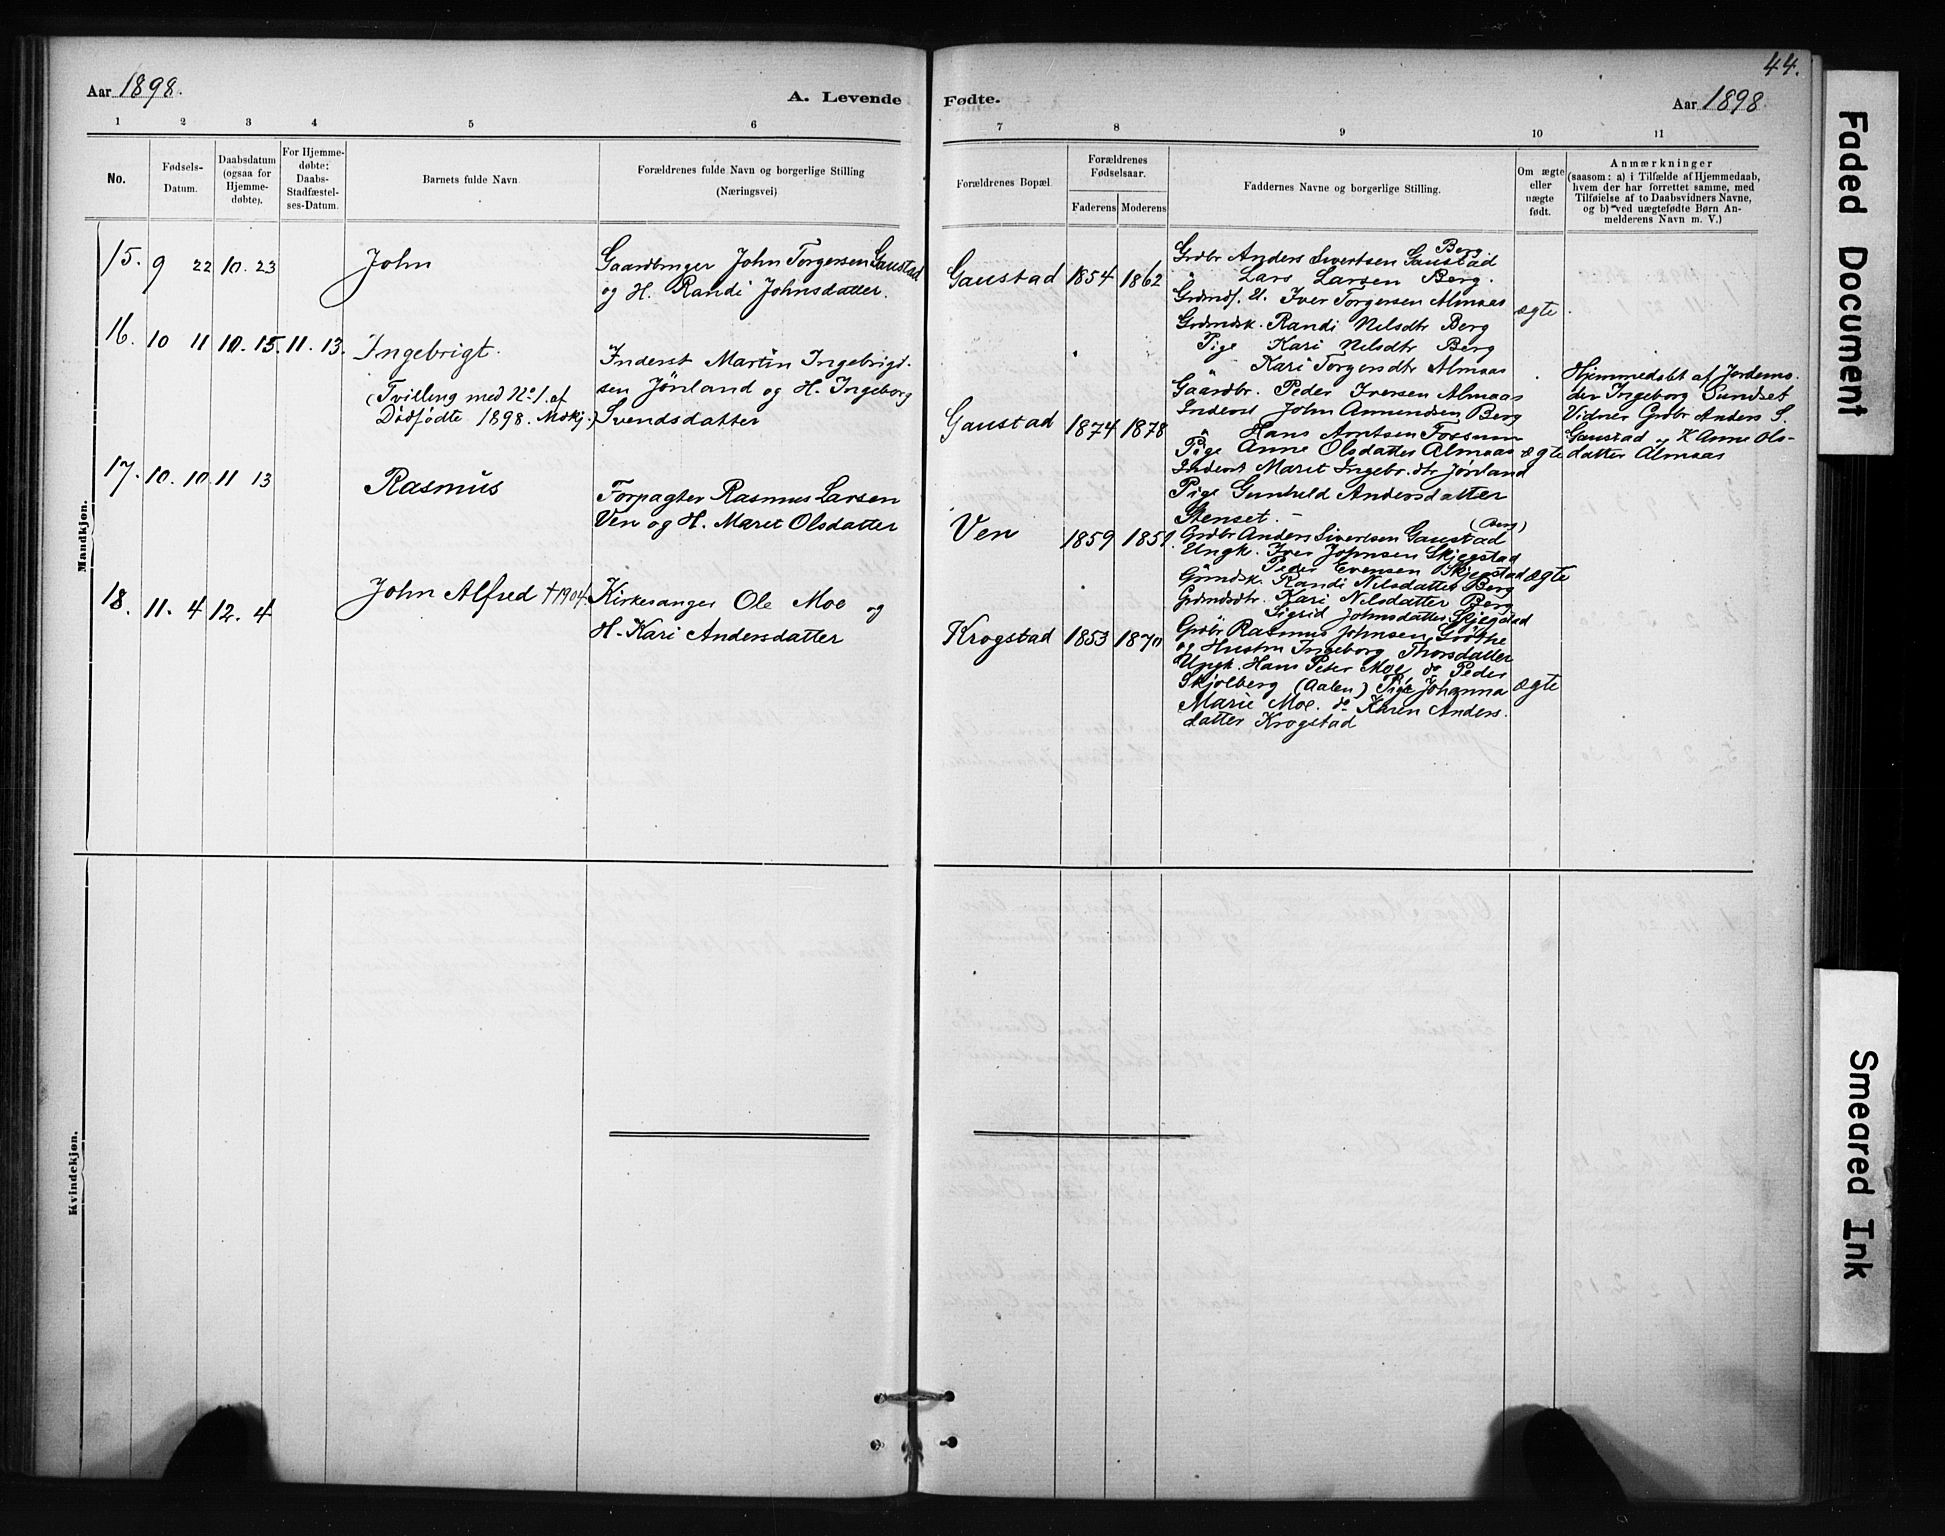 44.
Aar 1898.
A. Levende Fødte.
Aar 1898
1 2 3 4 5 6 7 8 9 10 11
No.
Fødsels-
Datum.
Daabsdatum
(ogsaa for
Hjemme-
døbte).
For Hjemme-
døbte:
Daabs-
Stadfæstel-
ses-Datum.
Barnets fulde Navn
Forældrenes fulde Navn og borgerlige Stilling
(Næringsvei)
Forældrenes Bopæl.
Forældrenes
Fødselsaar.
Faderens Moderens
Faddernes Navne og borgerlige Stilling.
Om ægte
eller
uægte
født.
Anmærkninger
(saasom: a) i Tilfælde af Hjemmedaab,
hvem der har forrettet samme, med
Tilføielse af to Daabsvidners Navne,
og b) ved uægtefødte Børn An-
melderens Navn m. V.)
Mandkjøn.
15. 9 22 10. 23
John
Gaardbruger John Torgersen Gaustad
og H. Randi Johnsdatter.
Gaustad 1854 1862
Berg
Grdbr Anders Sivertsen Gaustad
" Lars Larsen Berg.
Grdmdf. U. Iver Torgersen Almaas
Grdmdsk. Randi Nilsdtr Berg
Pige Kari Nilsdtr Berg
" Kari Torgersdtr Almaas
ægte
16. 10 11 10. 15. 11. 13.
Ingebrigt.
(Tvilling med No 1. af
Dødfødte 1898. Mdkj.)
Inderst Martin Ingebrigt-
sen Jønland og H. Ingeborg
Svendsdatter
Gaustad 1874 1878
Gaardbr. Peder Iversen Almaas
Inderst John Amundsen Berg
" Hans Arntsen Fossum
Pige Anne Olsdatter Almaas
Inderst Marit Ingebr.dtr Jønland
Pige Gunhild Andersdatter
Stenset.
ægte
Hjemmedøbt af Jordemo-
der Ingeborg Sundset
Vidner Grdbr Anders S.
Gaustad og K Anne Ols-
datter Almaas
17. 10. 10 11 13
Rasmus
Forpagter Rasmus Larsen
Ven og H. Marit Olsdatter
Ven 1859 1859
(Berg)
Grdbr Anders Sivertsen Gaustad
Ungk. Iver Johnsen Skjegstad
" Peder Evensen Skjegstad
Grdmdsk. Randi Nilsdatter Berg
Grdmdsdtr. Kari Nilsdatter Berg
" Sigrid Johnsdatter Skjegstad
ægte
18. 11. 4 12. 4
John Alfred † 1904.
Kirkesanger Ole Moe og
H. Kari Andersdatter
Krogstad 1853 1870
Grdbr Rasmus Johnsen
og Hustru Ingeborg Thorsdatter
Ungk. Hans Peter Moe, do Peder
Skjølberg (Aalen) Pige Johanna
Marie Moe. do Karen Anders-
datter Krogstad
ægte
Kvindekjøn.
Faded Document
Smeared Ink